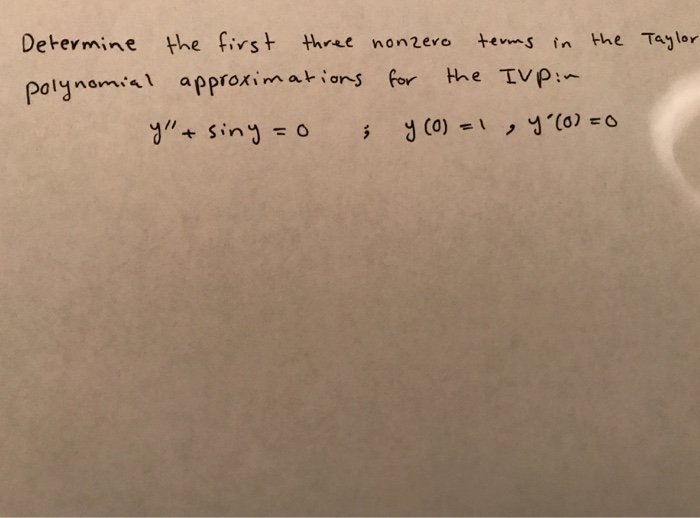 Determine the first three nonzero terms in the Taylor
polynomial approximations for the IVP:~
y'' + sin y = 0 ; y (0) = 1 , y'(0) = 0